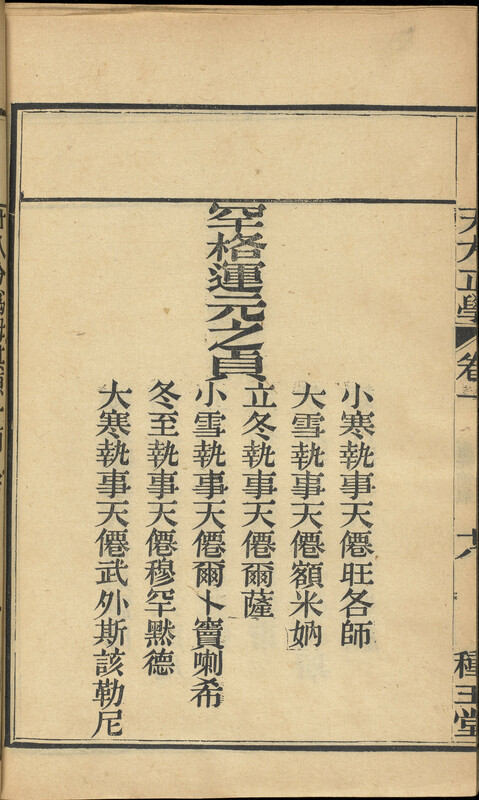 天方正學 卷一 十八 種玉堂
小寒執事天僊旺各師
大雪執事天僊額米妠
立冬執事天僊爾薩
空格運元之貞
小雪執事天僊爾卜竇喇希
冬至執事天僊穆罕黙德
大寒執事天僊武外斯該勒尼